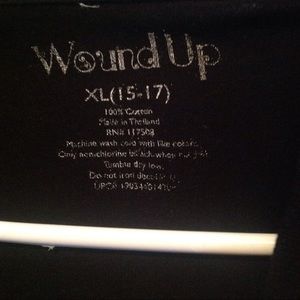 Wound Up
XL(15-17)
100% Cotton
Made in Thailand
RN# 117508
Machine wash cold with like colors
Only non-chlorine bleach when
Tumble dry low
Do not iron
UPC#